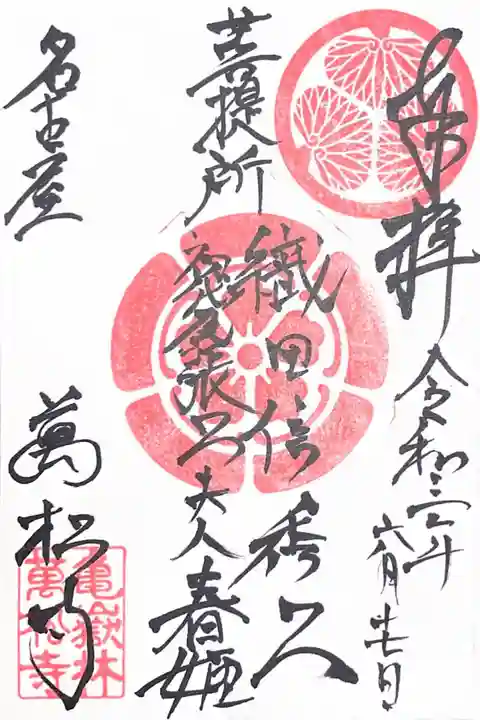 奉拝 令和三年六月廿七日
菩提所
織田信秀公
尾張公夫人春姫
名古屋 萬松寺
亀嶽林
萬松寺